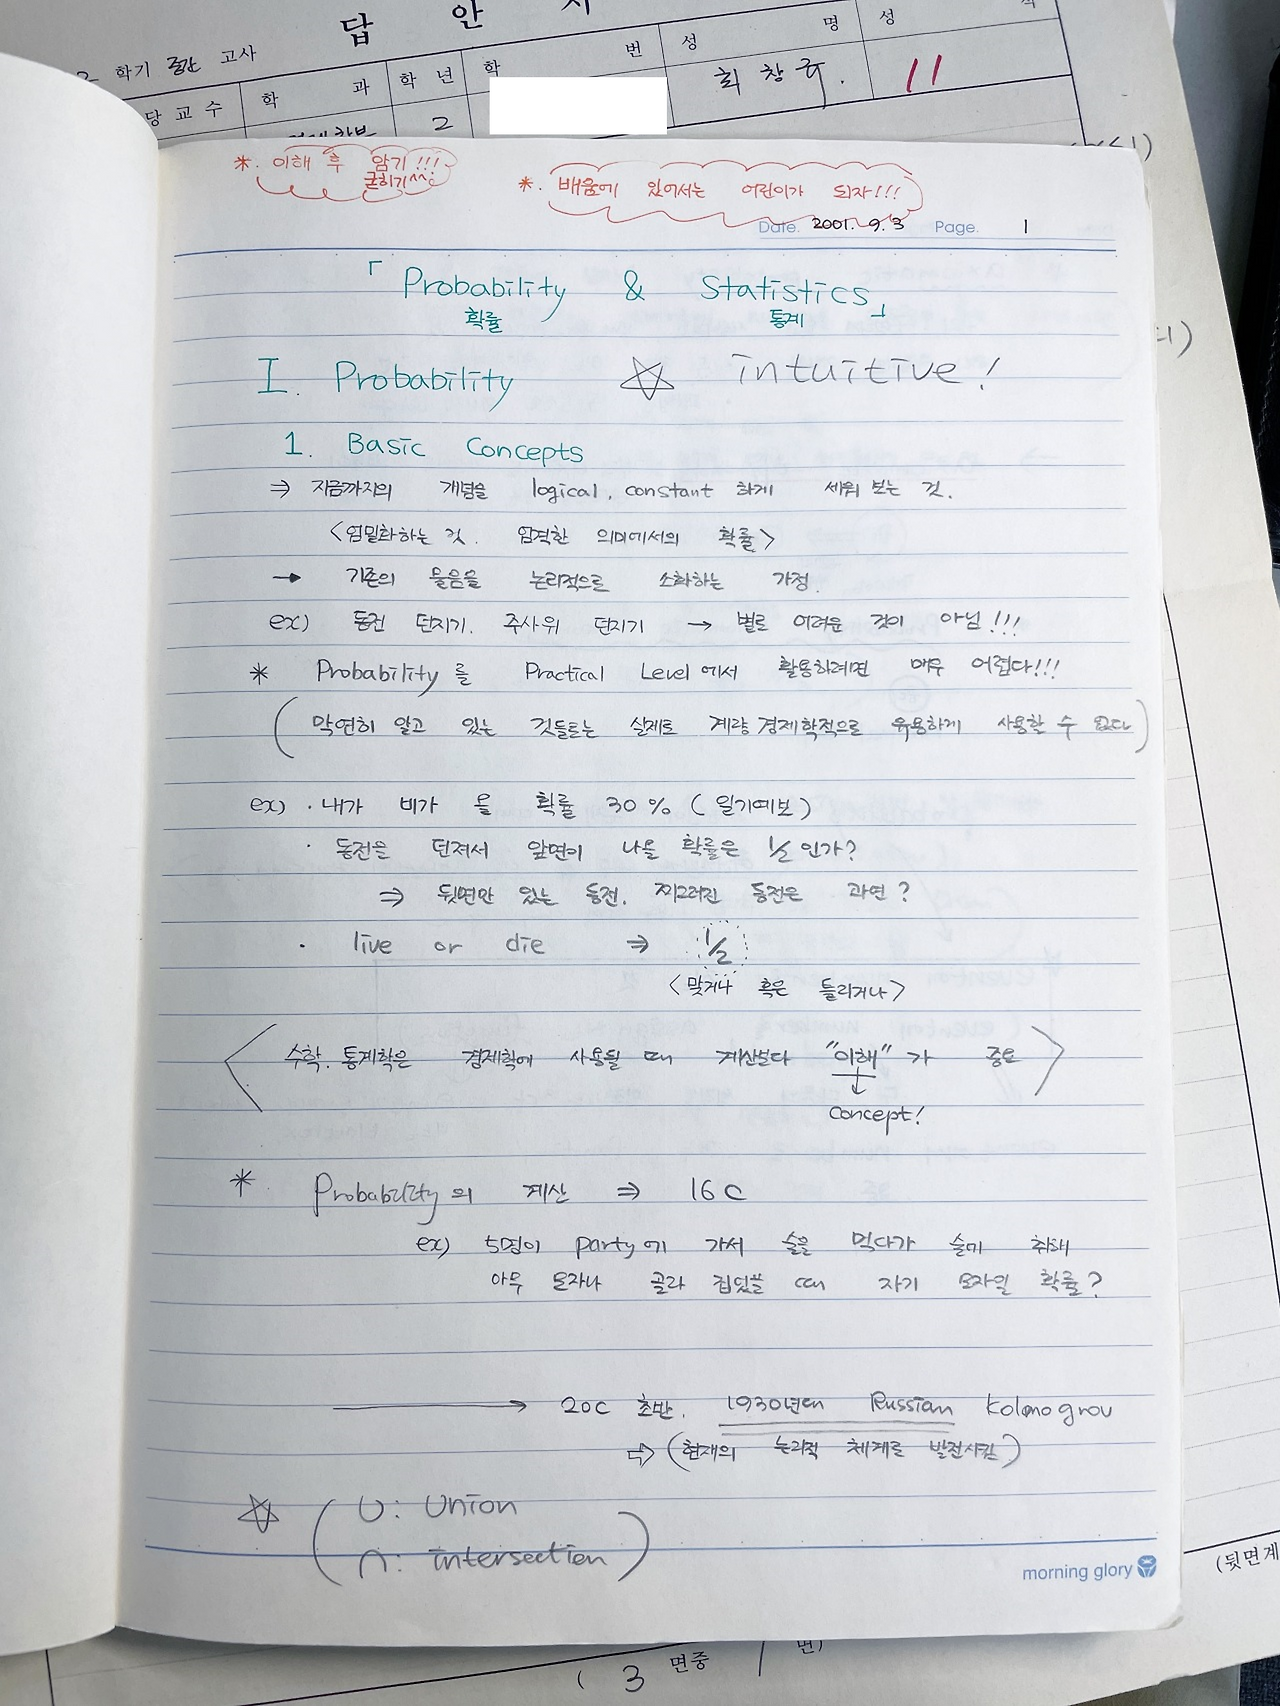 답 안 지
학기 중간 고사
당 교 수 학 과 학 년 학 번 성 명 성 적
2 최 창 규. 11
*. 이해 후 암기!!!
굳히기^^
*. 배움에 있어서는 어린이가 되자!!!
Date. 2001. 9. 3 Page. 1
「Probability & Statistics」
확률 통계
I. Probability ☆ intuitive!
1. Basic Concepts
⇒ 지금까지의 개념을 logical, constant 하게 세워 보는 것.
<엄밀화하는 것. 엄격한 의미에서의 확률>
→ 기존의 물음을 논리적으로 소화하는 가정.
ex) 동전 던지기. 주사위 던지기 → 별로 어려운 것이 아님!!!
* Probability를 Practical Level에서 활용하려면 매우 어렵다!!!
(막연히 알고 있는 것들로는 실제로 계량경제학적으로 유용하게 사용할 수 없다)
ex) · 내가 비가 올 확률 30% (일기예보)
· 동전을 던져서 앞면이 나올 확률은 1/2인가?
⇒ 뒷면만 있는 동전. 찌그러진 동전은 과연?
· live or die ⇒ 1/2
<맞거나 혹은 틀리거나>
<수학. 통계학은 경제학에 사용될 때 계산보다 "이해"가 중요>
↓
Concept!
* Probability의 계산 ⇒ 16C
ex) 5명이 party에 가서 술을 먹다가 술에 취해
아무 모자나 골라 집었을 때 자기 모자일 확률?
→ 20C 초반. 1930년대 Russian Kolmogrov
⇒ (현재의 논리적 체계로 발전시킴)
☆ (∪: Union
∩: intersection)
morning glory
(뒷면계
( 3 면중 / 번)